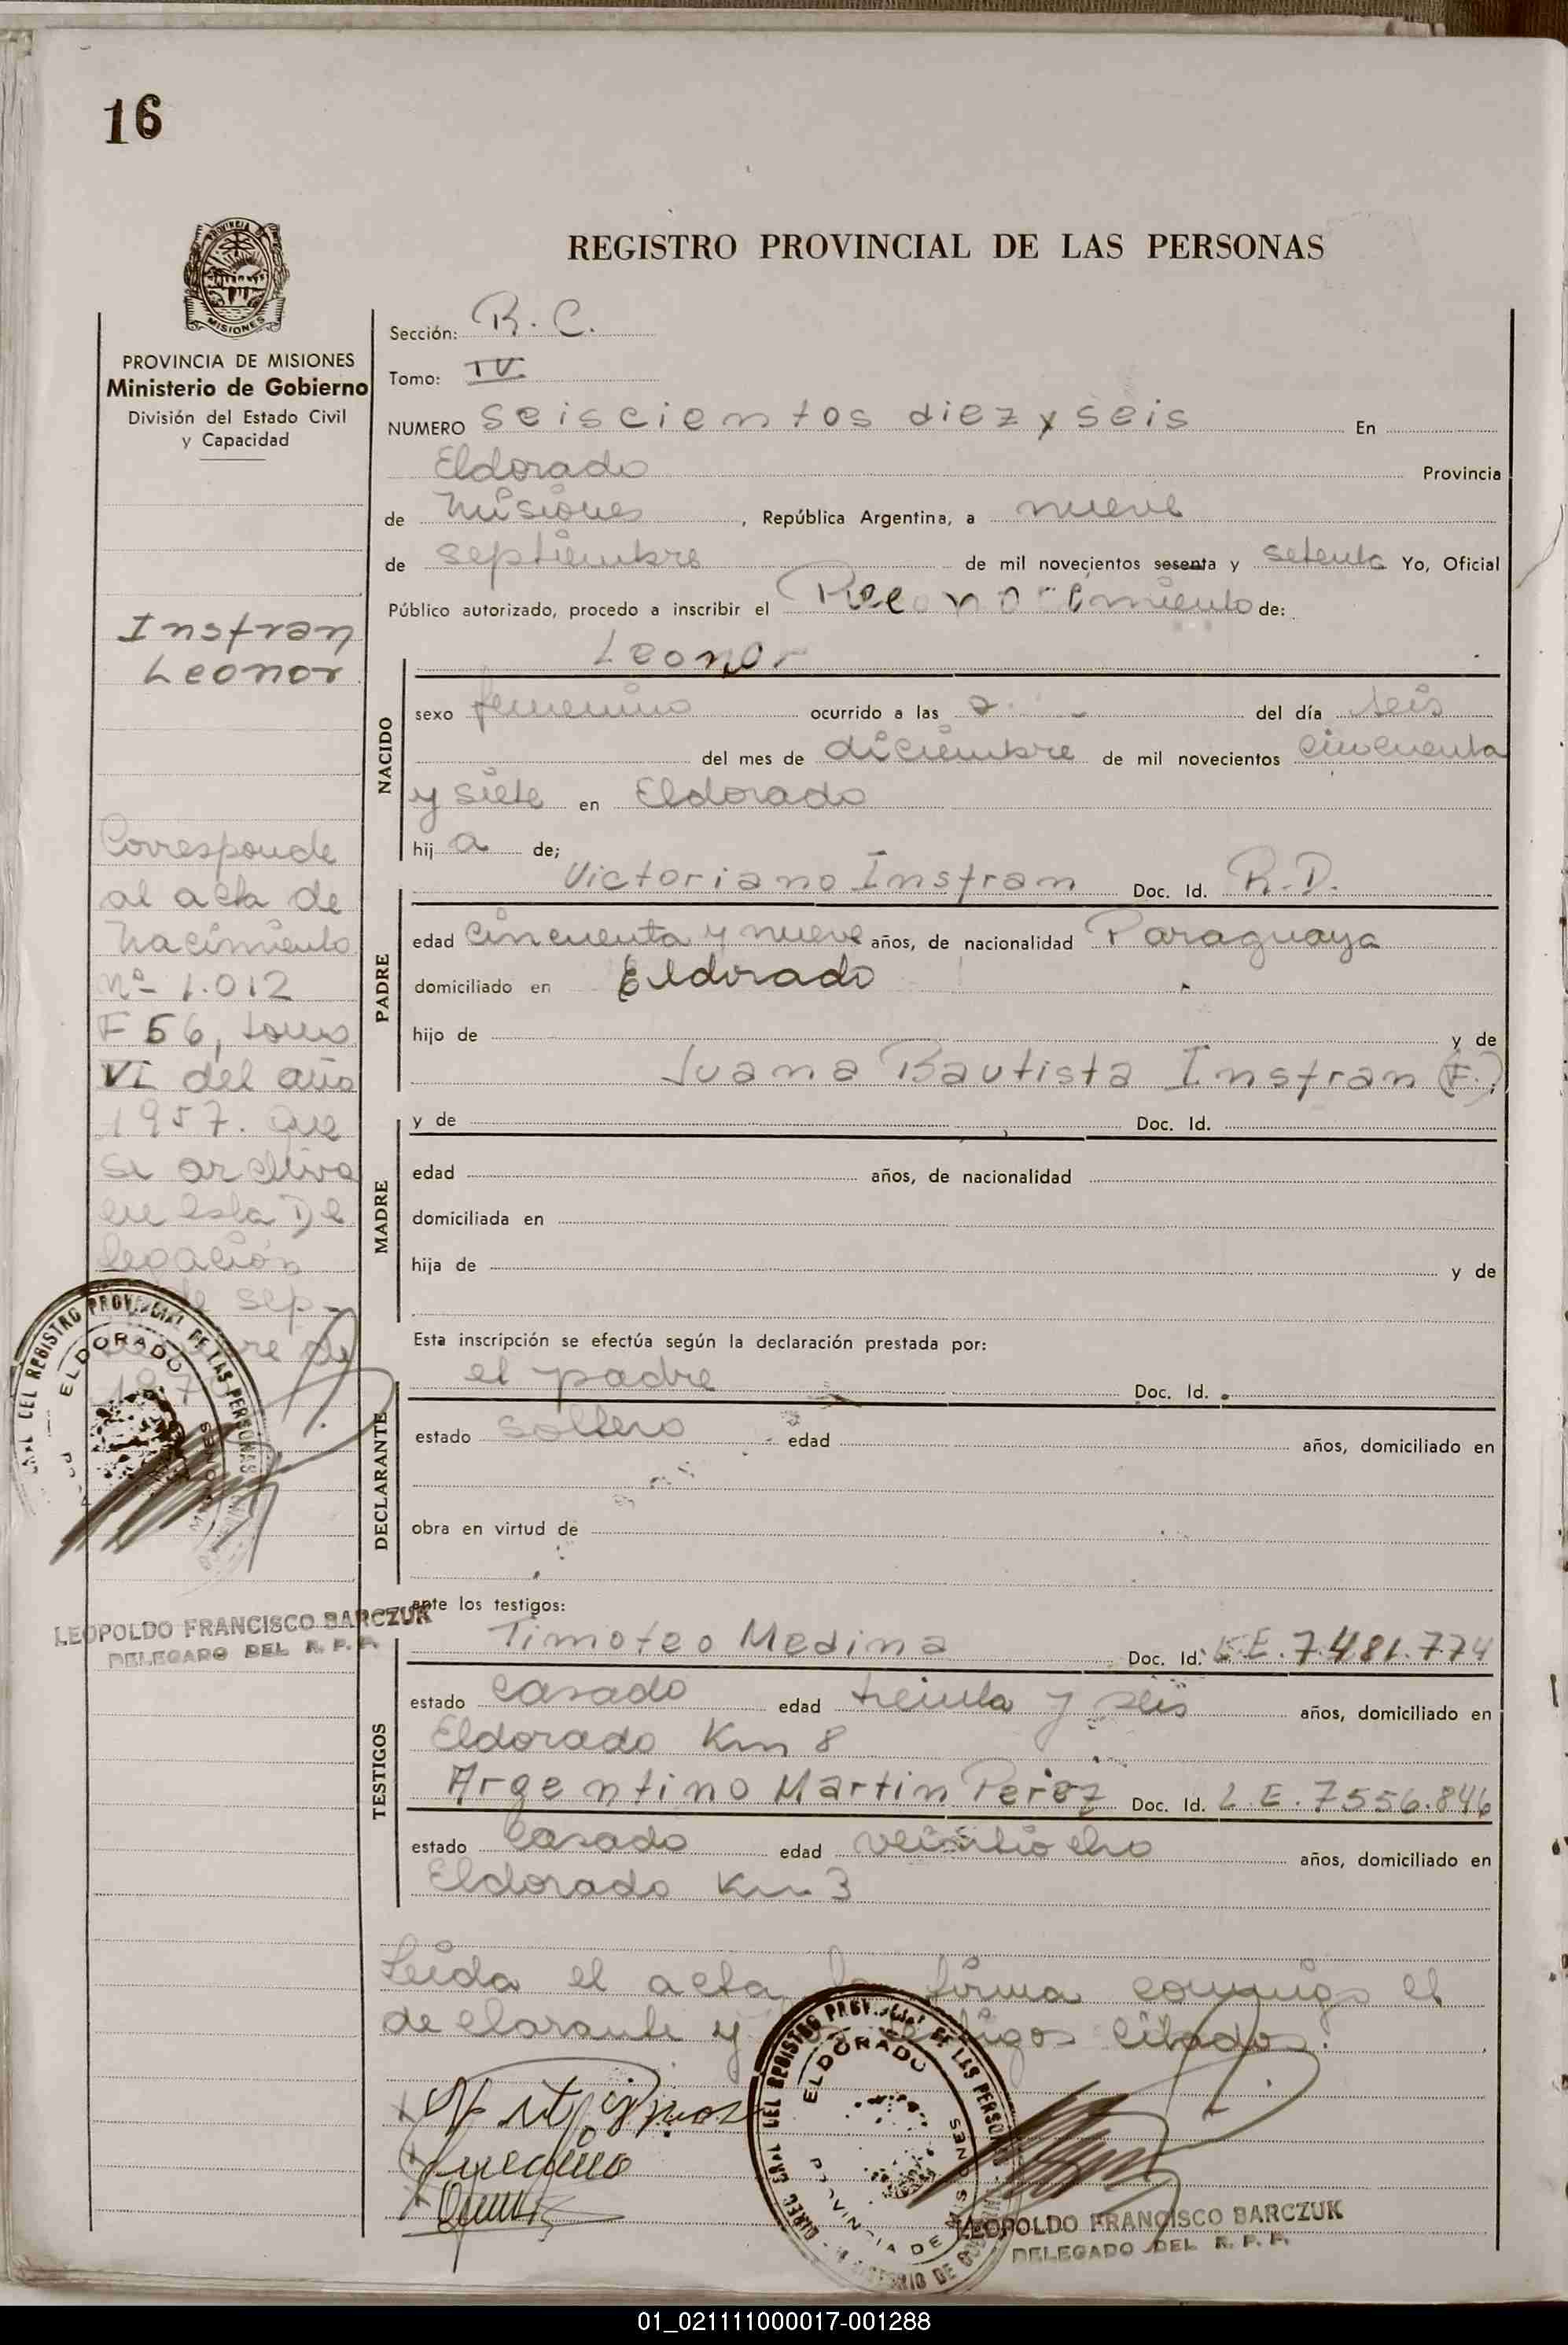 16
REGISTRO PROVINCIAL DE LAS PERSONAS
PROVINCIA DE MISIONES
Ministerio de Gobierno
División del Estado Civil
y Capacidad
Insfran
Leonor
Corresponde
al acta de
Nacimiento
nº 1.012
F 56, tomo
VI del año
1957. que
se archiva
en esta De
legación
de sep-
re de
197
LEOPOLDO FRANCISCO BARCZUK
DELEGADO DEL R. P. P.
Sección: R. C.
Tomo: IV
NUMERO seiscientos diez y seis En
Eldorado Provincia
de Misiones, República Argentina, a nueve
de septiembre de mil novecientos sesenta y setenta Yo, Oficial
Público autorizado, procedo a inscribir el Reconocimiento de:
NACIDO
Leonor
sexo femenino ocurrido a las - del día seis
del mes de diciembre de mil novecientos cincuenta
y siete en Eldorado
hij a de;
PADRE
Victoriano Insfran Doc. Id. R.D.
edad cincuenta y nueve años, de nacionalidad Paraguaya
domiciliado en Eldorado
hijo de y de
Juana Bautista Insfran (F.)
MADRE
y de Doc. Id.
edad años, de nacionalidad
domiciliada en
hija de y de
Esta inscripción se efectúa según la declaración prestada por:
DECLARANTE
el padre Doc. Id.
estado soltero edad años, domiciliado en
obra en virtud de
ante los testigos:
TESTIGOS
Timoteo Medina Doc. Id. L.E. 7.481.774
estado casado edad treinta y seis años, domiciliado en
Eldorado Km 8
Argentino Martin Perez Doc. Id. L.E. 7556.846
estado casado edad veintiocho años, domiciliado en
Eldorado Km 3
Leida el acta la firma conmigo el
declarante y los testigos citados.
DEL REGISTRO PROVINCIAL DE LAS PERSONAS
ELDORADO
PROVINCIA DE MISIONES
LEOPOLDO FRANCISCO BARCZUK
DELEGADO DEL R. P. P.
01_021111000017-001288